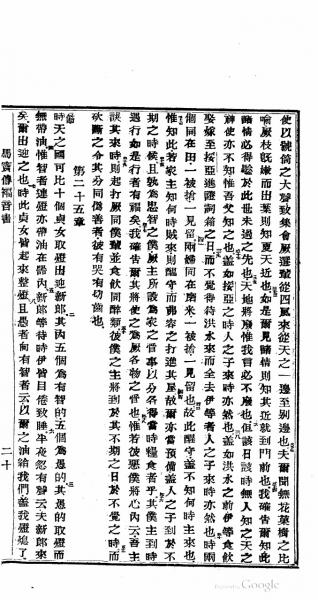 使以號筒之大聲致集會厥選輩從四風來從天之一邊至別邊也夫爾聞無花菓樹之比
喻厥枝旣嫩而出葉則知夏天近也如是爾見諸情則知其近就到門前也我確告爾知此
諸情必得驗於此世未過之先也天地將廢惟我言必不廢也但該日該時無人知之天之
神使亦不知惟吾父知之也蓋如挼亞之時人之子來時亦然也蓋如洪水之前伊等食飲
娶嫁至挼亞進箱之日而不覺得待洪水來而全去伊等者人之子來時亦然也時兩
個同在田一被拾一見留兩婦同在磨米一被拾一見留也故此醒守蓋不知何時主來也
惟知此若家主知何時賊來則醒守而弗容之打進其屋故爾亦當預備蓋人之子到於不
期之時候且孰為忠智之僕厥主所設為家之宰事以分各得當時糧食者乎其僕主到時
遇行如是行者有福矣我確告爾其將使之為厥各物之督也惟若彼惡僕將心內云吾主
誤其來時則起打厥同僕輩並食飲同醉類彼僕之主將到於其不期之日於不覺之時而
砍斷之令其分同偽善者彼有哭有切齒也
第二十五章
時天之國可比十個貞女取燈出迎新郎其內五個為有智的五個為愚的其愚的取燈而
無帶油惟智者連燈亦帶油在器內新郎等待時伊皆目倦致睡半夜忽有聲云夫新郎來
矣爾出迎之也時此貞女皆起來整燈且愚者向有智者云以爾之油給我們蓋我燈熄了
馬竇傳福音書
二十
Google